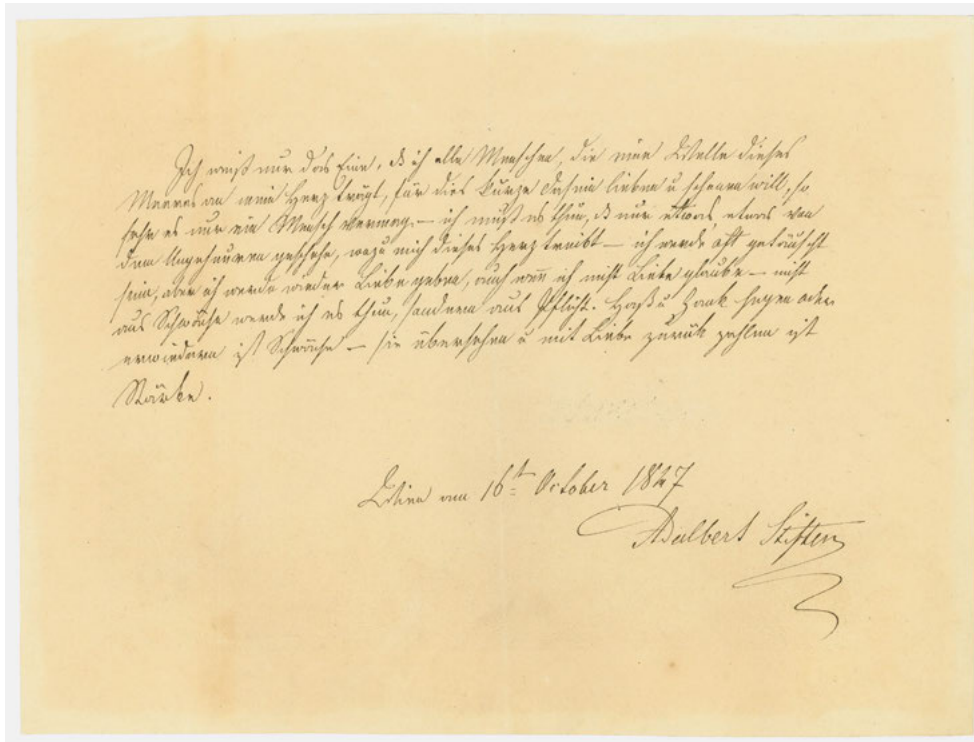 Ich weiß nur das Eine, dß ich alle Menschen, die eine Welle dieses
Meeres an mein Herz trägt, für dies kurze Dasein lieben u schonen will, so
sehr es nur ein Mensch vermag. — ich muß es thun, dß nur etwas etwas von
dem Ungeheuren geschehe, wozu mich dieses Herz treibt — ich werde oft getäuscht
sein, aber ich werde wieder Liebe geben, auch wenn ich nicht Liebe glaube — nicht
aus Schwäche werde ich es thun, sondern aus Pflicht. Haß u Zank hegen oder
erwiedern ist Schwäche — sie übersehen u mit Liebe zurück zahlen ist
Stärke.
Wien am 16t October 1847
Adalbert Stifter